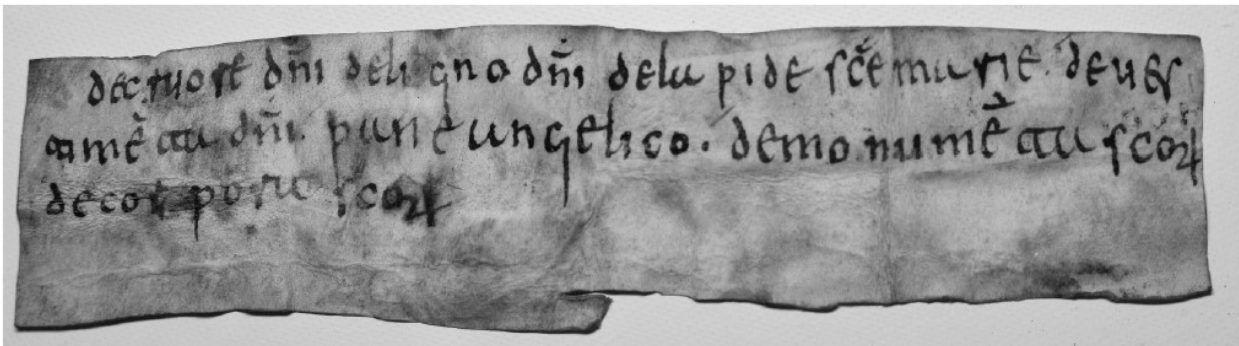 decruore dñi deligno dñi delapide sc̃e marie. deues
timẽta dñi. pane angelico. demonumẽta scoꝝ
decorpora scoꝝ